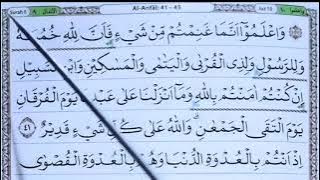 Surah 8 الأنفال ٩ Al-Anfal: 41 - 43 Juz 10 واعلموا ١٠
وَاعْلَمُوْٓا اَنَّمَا غَنِمْتُمْ مِّنْ شَيْءٍ فَاَنَّ لِلّٰهِ خُمُسَهٗ
وَلِلرَّسُوْلِ وَلِذِى الْقُرْبٰى وَالْيَتٰمٰى وَالْمَسٰكِيْنِ وَابْنِ السَّبِيْلِ
اِنْ كُنْتُمْ اٰمَنْتُمْ بِاللّٰهِ وَمَآ اَنْزَلْنَا عَلٰى عَبْدِنَا يَوْمَ الْفُرْقَانِ
يَوْمَ الْتَقَى الْجَمْعٰنِ وَاللّٰهُ عَلٰى كُلِّ شَيْءٍ قَدِيْرٌ ٤١
اِذْ اَنْتُمْ بِالْعُدْوَةِ الدُّنْيَا وَهُمْ بِالْعُدْوَةِ الْقُصْوٰى